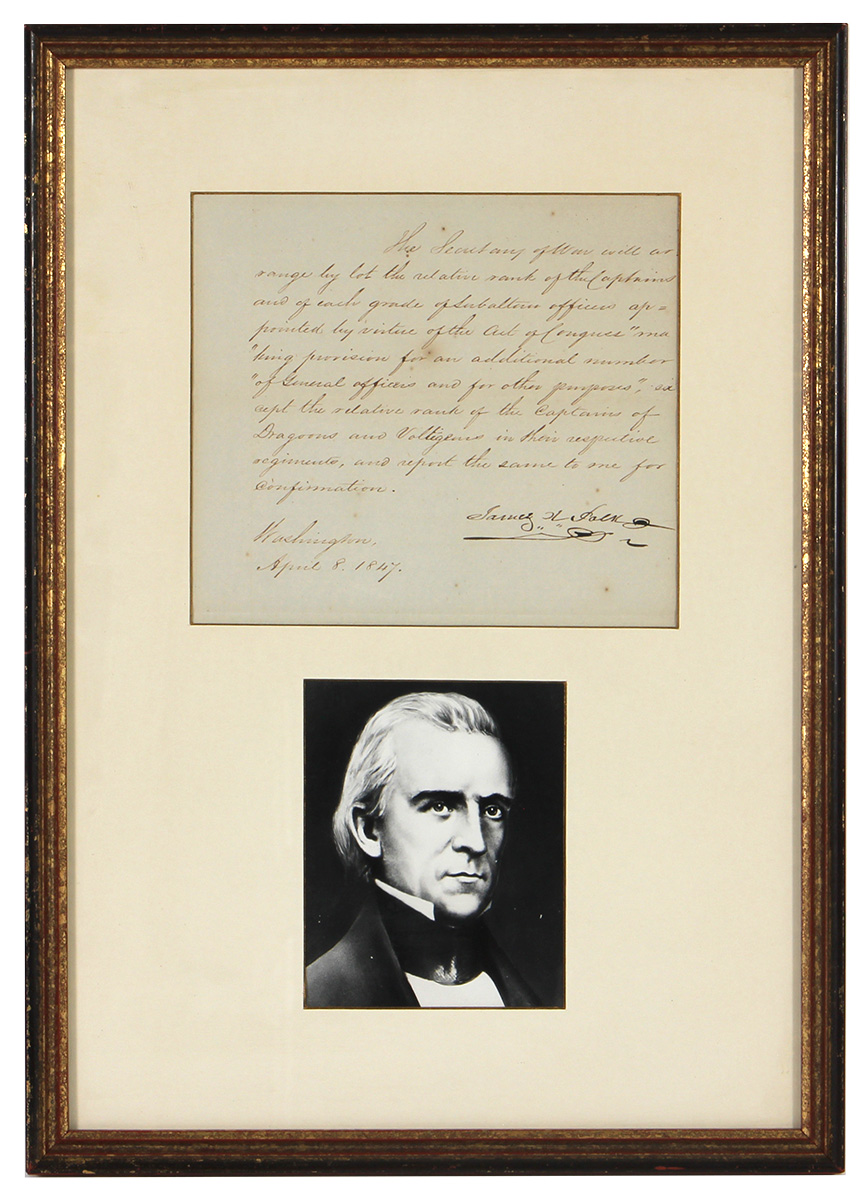 The Secretary of War will ar
range by lot the relative rank of the Captains
and of each grade of Subaltern officers ap=
pointed by virtue of the Act of Congress "ma
"king provision for an additional number
"of General officers and for other purposes", ex
cept the relative rank of the Captains of
Dragoons and Voltigeurs in their respective
regiments, and report the same to me for
Confirmation.
James K Polk
Washington,
April 8. 1847.